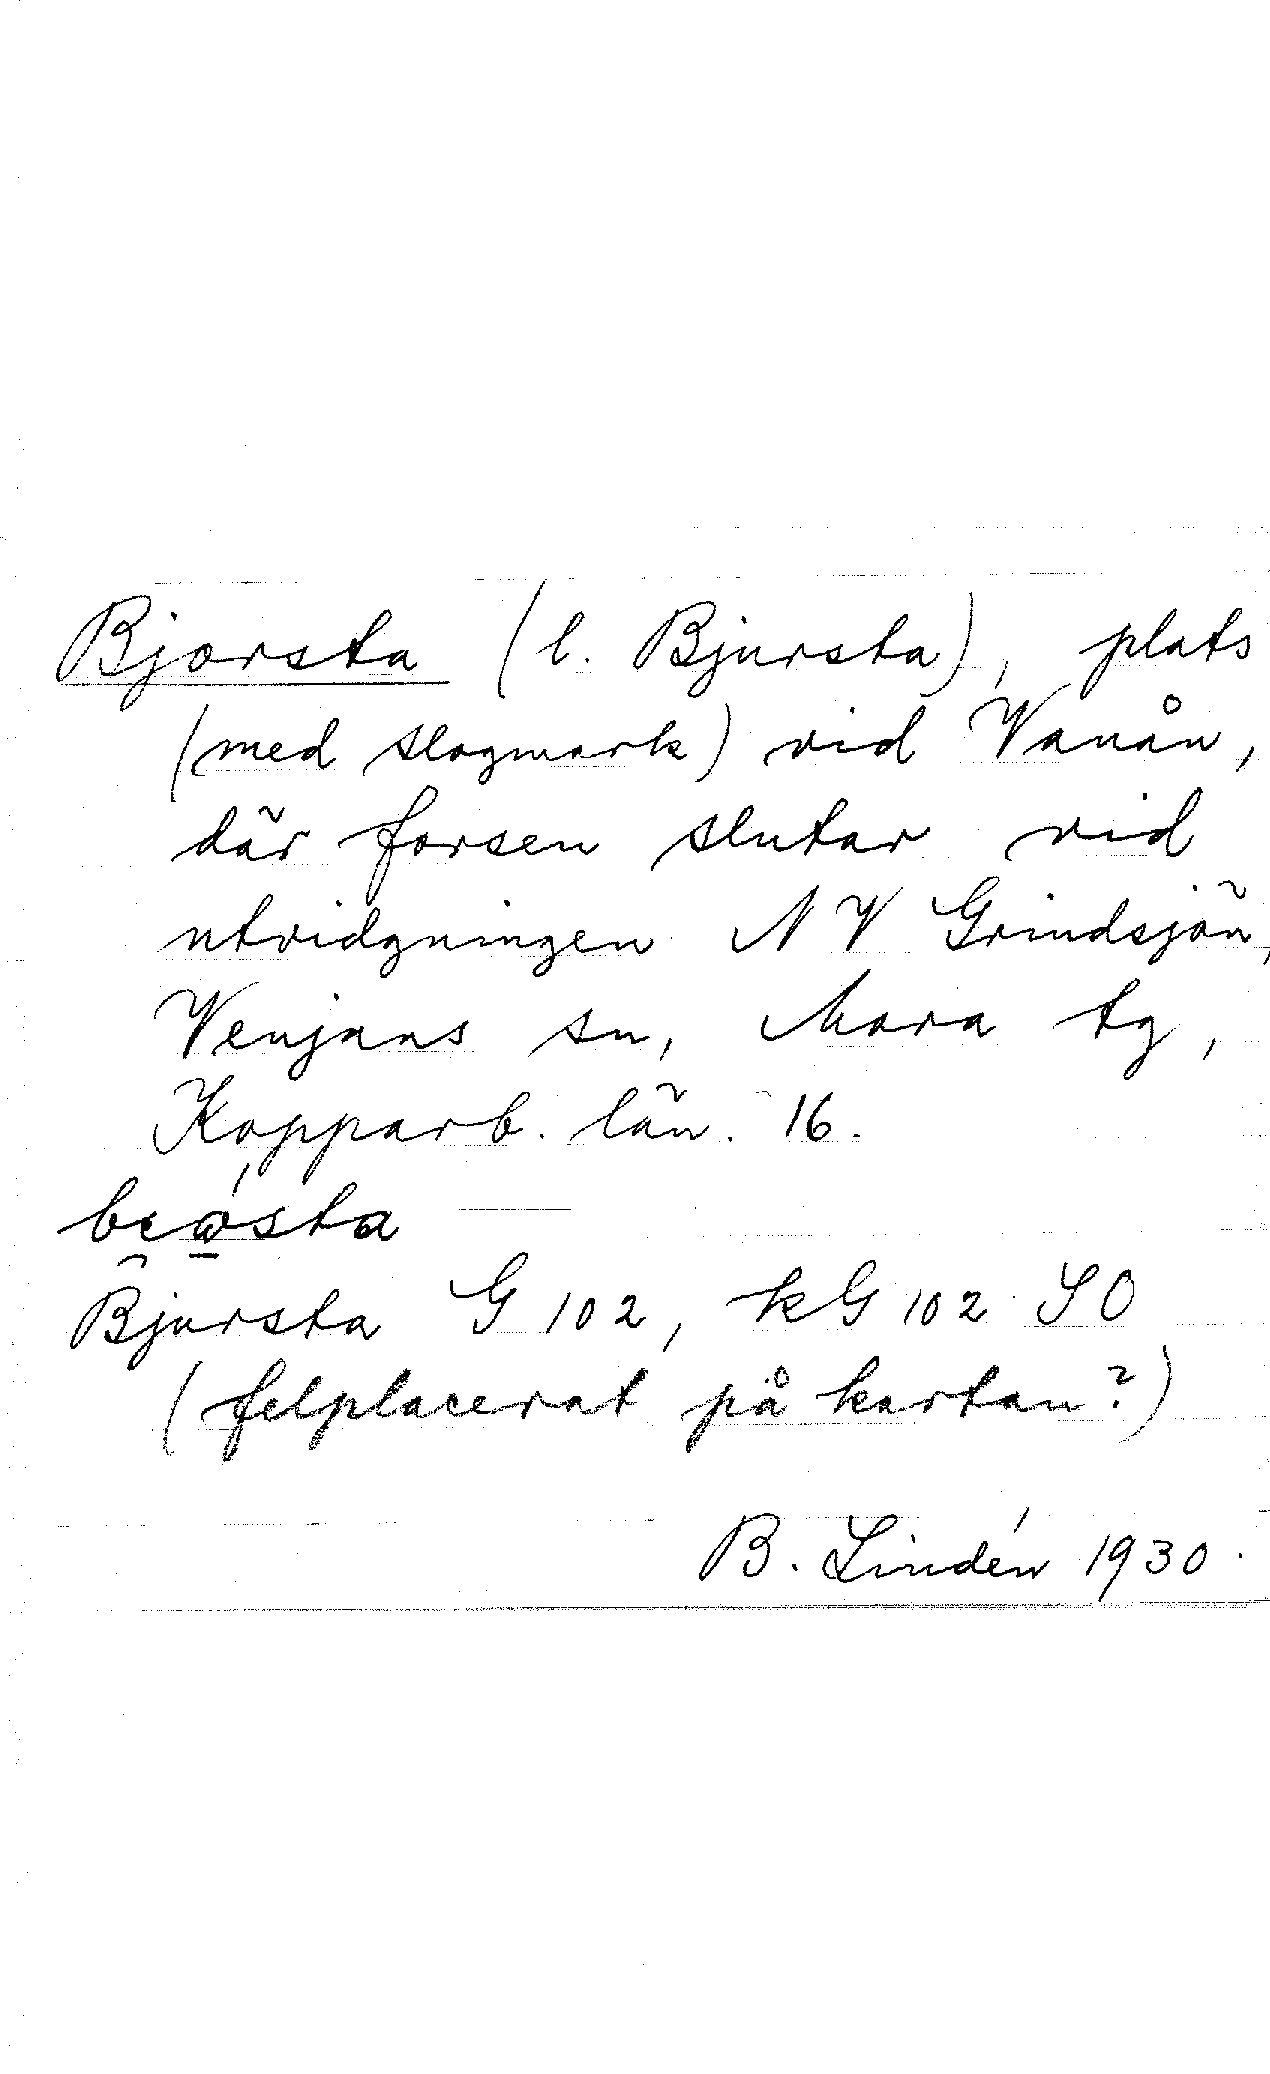 Bjorsta (l. Bjursta), plats
(med slogmark) vid Vanån,
där forsen slutar vid
utvidgningen NV Grindsjön,
Venjans sn, Mora tg,
Kopparb. län. 16.
Bjursta G 102, kG 102 SO
(felplacerat på kartan?)
B. Lindén 1930.